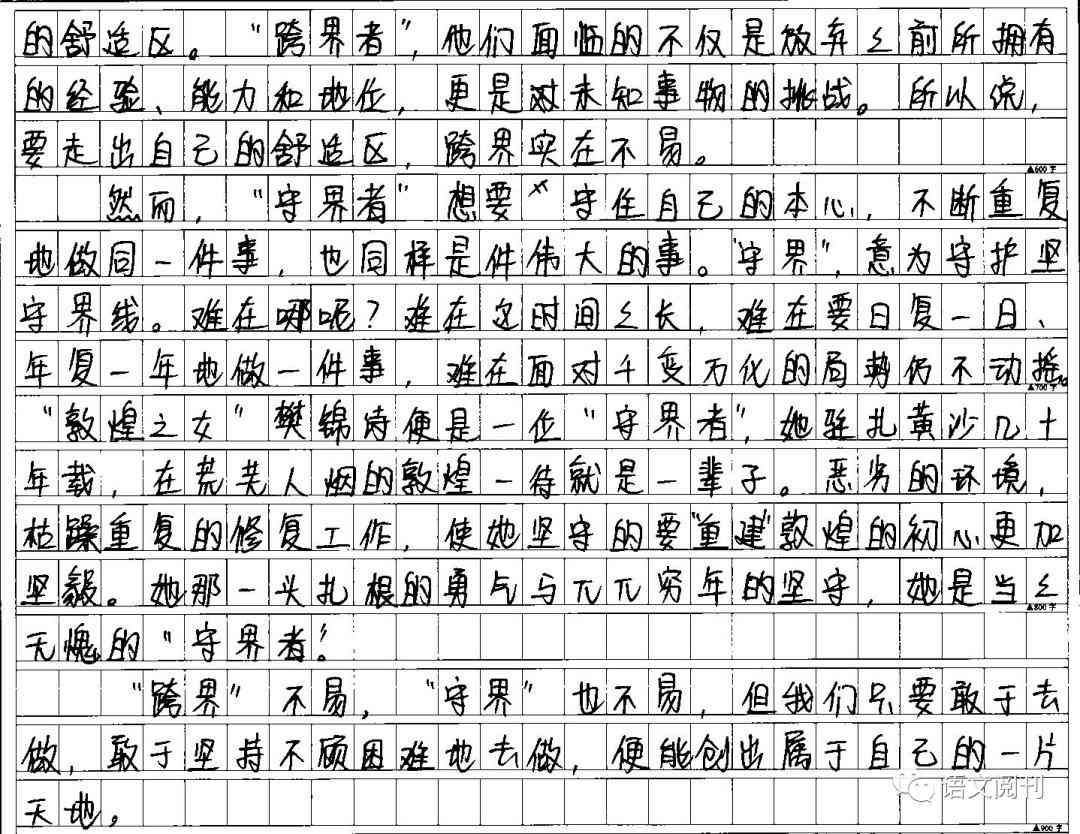 的舒适区。“跨界者”，他们面临的不仅是放弃之前所拥有
的经验、能力和地位，更是对未知事物的挑战。所以说，
要走出自己的舒适区，跨界实在不易。
▲600字
然而，“守界者”想要守住自己的本心，不断重复
地做同一件事，也同样是件伟大的事。“守界”，意为守护坚
守界线。难在哪呢？难在这时间之长，难在要日复一日、
年复一年地做一件事，难在面对千变万化的局势仍不动摇。
▲700字
“敦煌之女”樊锦诗便是一位“守界者”，她驻扎黄沙几十
年载，在荒芜人烟的敦煌一待就是一辈子。恶劣的环境，
枯躁重复的修复工作，使她坚守的要“重建”敦煌的初心更加
坚毅。她那一头扎根的勇气与兀兀穷年的坚守，她是当之
▲800字
无愧的“守界者”！
“跨界”不易，“守界”也不易，但我们只要敢于去
做，敢于坚持不顾困难地去做，便能创出属于自己的一片
天地。
语文阅刊
▲900字